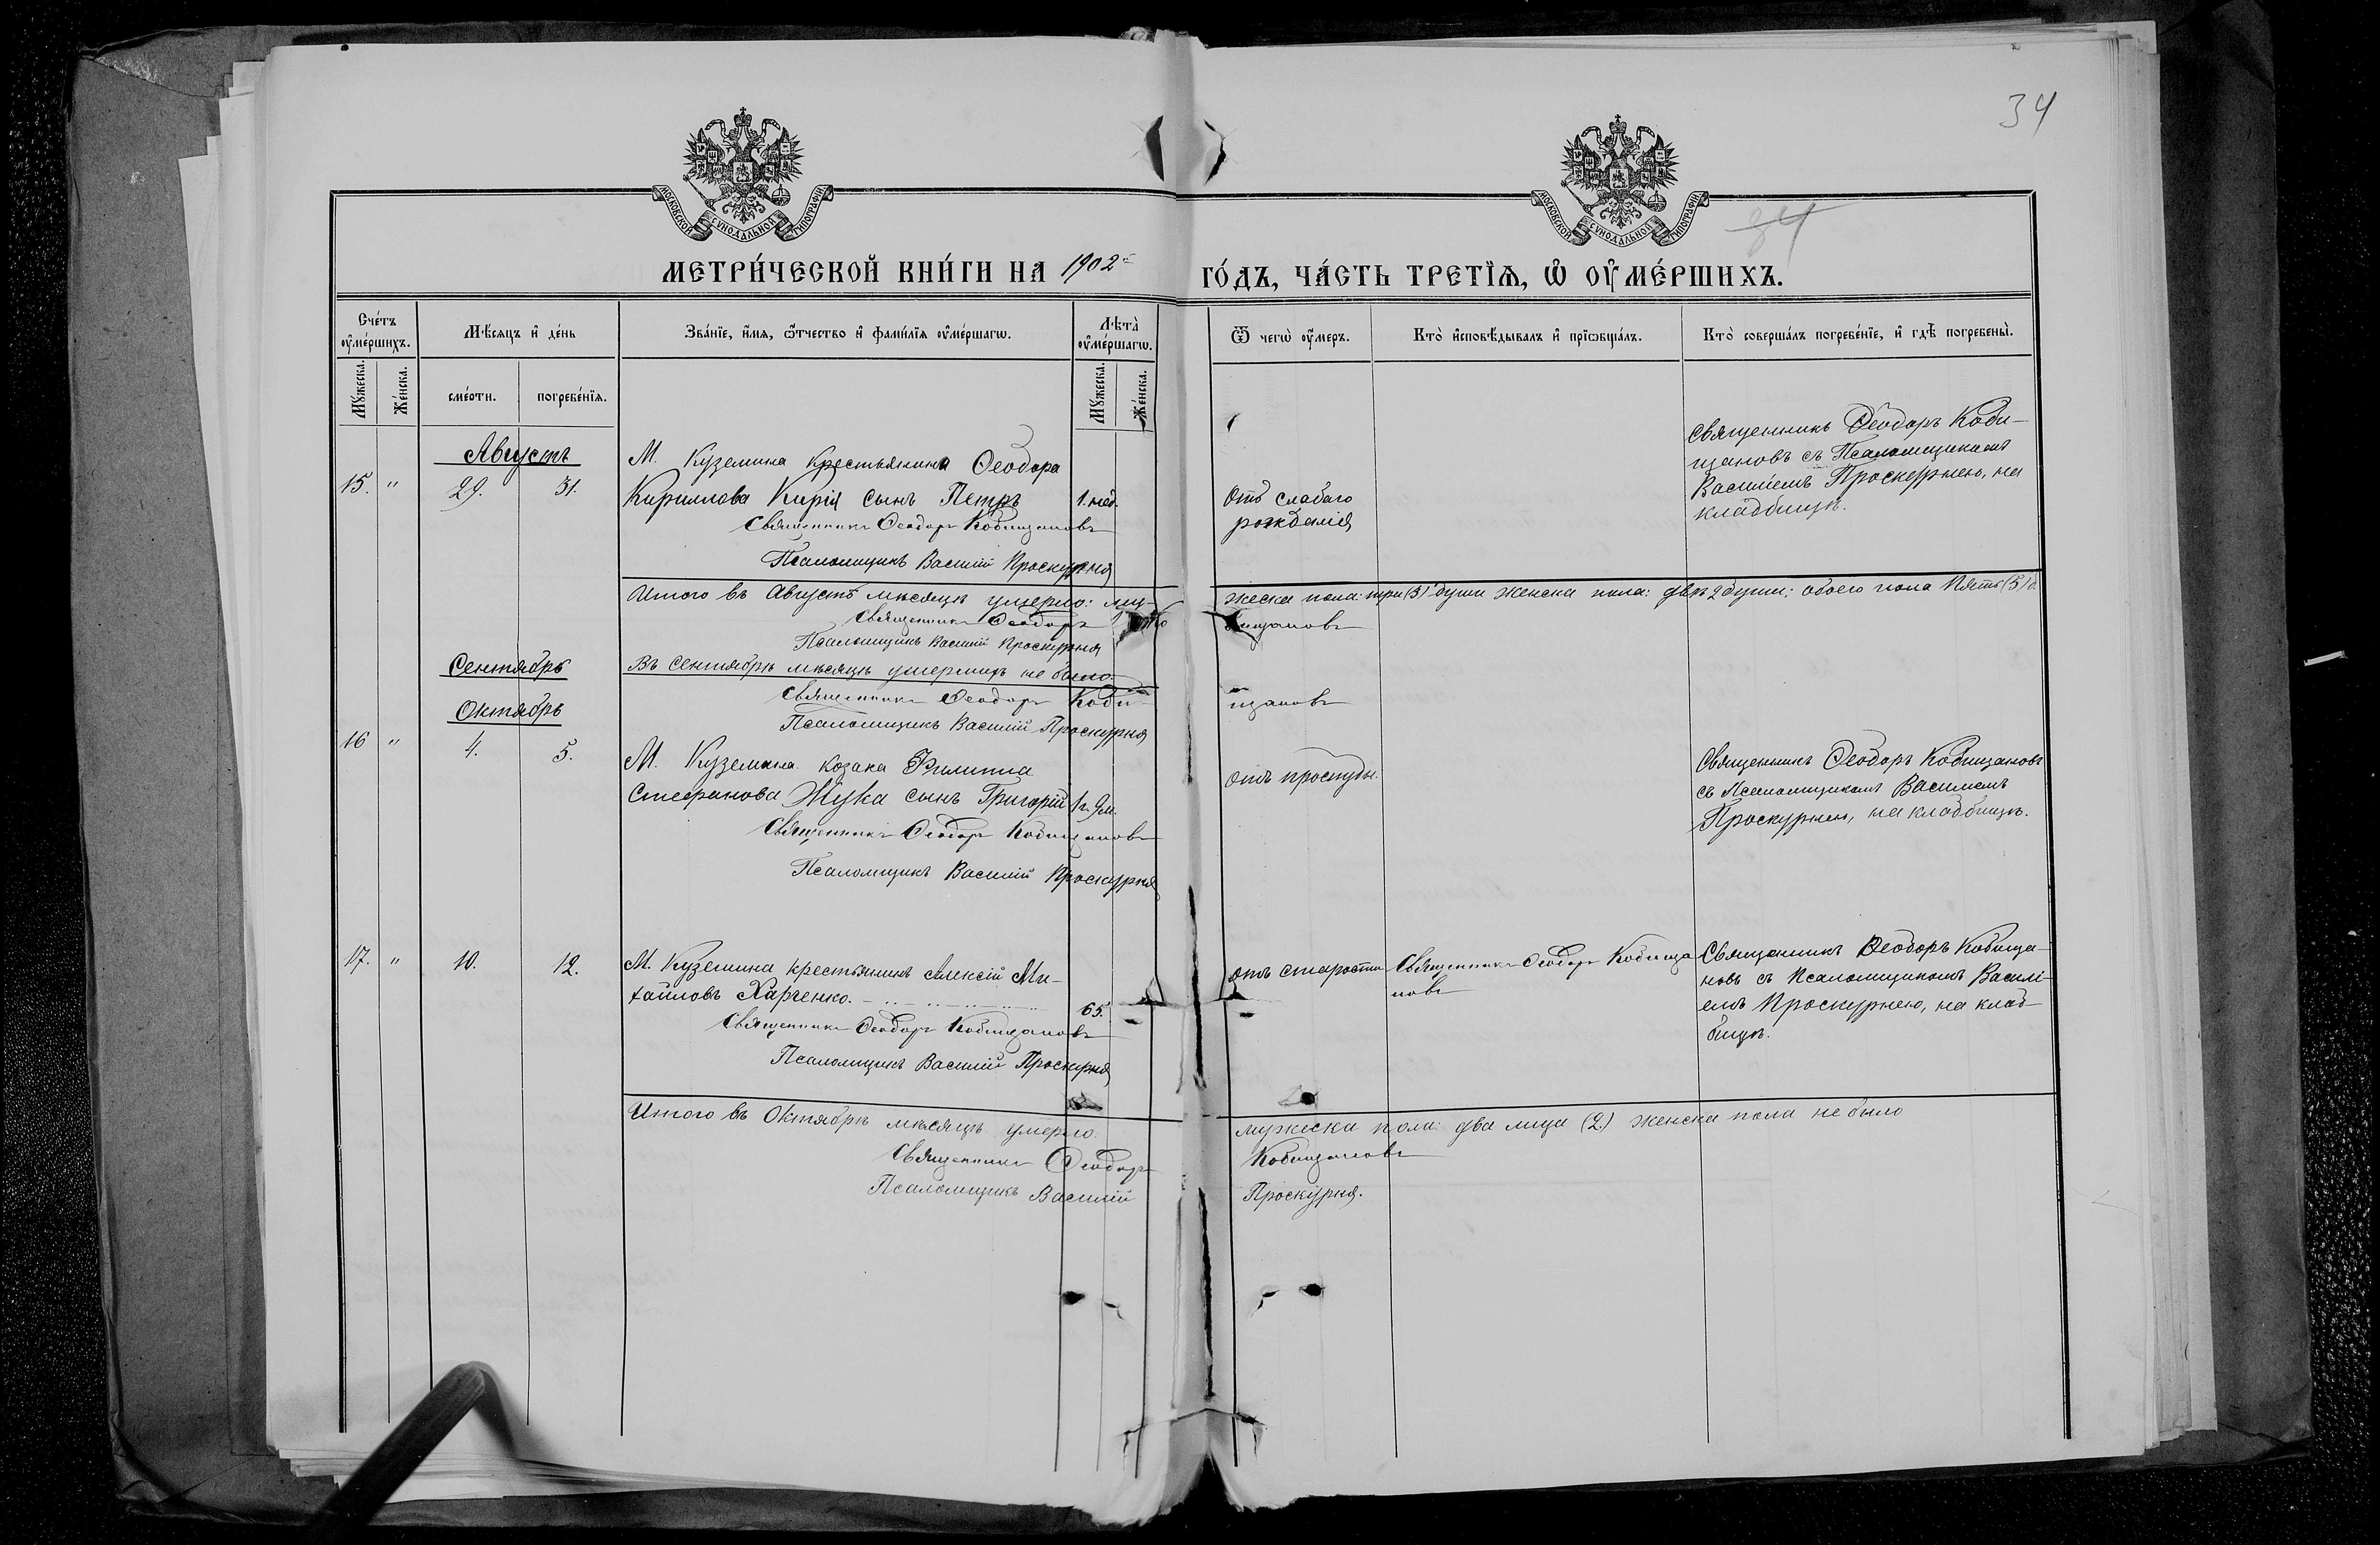 34
МОСКОВСКОЙ СУНОДАЛЬНОЙ ТИПОГРАФІИ
МОСКОВСКОЙ СУНОДАЛЬНОЙ ТИПОГРАФІИ
34
МЕТРИ́ЧЕСКОЙ КНИ́ГИ НА 1902й ГО́ДЪ, ЧА́СТЬ ТРЕТІѦ, Ѡ ОУ҆МЕ́РШИХЪ.
Сче́тъ оу҆ме́ршихъ.
Мѣ́сѧцъ и҆ де́нь
Зва́нїе, и҆́мѧ, ѻ҆́тчество и҆ фами́лїѧ оу҆ме́ршагѡ.
Лѣ́та оу҆ме́ршагѡ.
Ѿ чегѡ̀ оу҆́меръ.
Кто̀ и҆сповѣ́дывалъ и҆ прїѡбща́лъ.
Кто̀ соверша́лъ погребе́нїе, и҆ гдѣ̀ погребены̀.
Мꙋ́жеска.
Же́нска.
сме́рти.
погребе́нїѧ.
Мꙋ́жеска.
Же́нска.
Августъ
15. " 29. 31.
М. Куземина крестьянина Ѳеодора
Кириллова Кирія сынъ Петръ 1. нед.
Священникъ Ѳеодоръ Кобищановъ
Псаломщикъ Василій Проскурня
Отъ слабаго
рожденія
Священникъ Ѳеодоръ Коби-
щановъ съ Псаломщикомъ
Василіемъ Проскурнею, на
кладбищѣ.
Итого въ Августѣ мѣсяцѣ умерло: му-
жеска пола: три (3) души женска пола: двѣ 2 души; обоего пола Пять (5) д.
Священникъ Ѳеодоръ
бищановъ
Псаломщикъ Василій Проскурня
Сентябрь
Въ Сентябрѣ мѣсяцѣ умершихъ не было.
Священникъ Ѳеодоръ Коби-
щановъ
Псаломщикъ Василій Проскурня
Октябрь
16 " 4. 5.
М. Куземина козака Филиппа
Стефанова Жука сынъ Григорій 1г. 9м.
Священникъ Ѳеодоръ Кобищановъ
Псаломщикъ Василій Проскурня
отъ простуды.
Священникъ Ѳеодоръ Кобищановъ
съ Псаломщикомъ Василіемъ
Проскурнею, на кладбищѣ.
17. " 10. 12.
М. Куземина крестьянинъ Алексій Ми-
хайловъ Харченко. 65.
Священникъ Ѳеодоръ Кобищановъ
Псаломщикъ Василій Проскурня
отъ старости
Священникъ Ѳеодоръ Кобища
новъ
Священникъ Ѳеодоръ Кобища-
новъ съ Псаломщикомъ Василі-
емъ Проскурнею, на клад-
бищѣ.
Итого въ Октябрѣ мѣсяцѣ умерло.
мужеска пола: два лица (2) женска пола не было
Священникъ Ѳеодоръ
Кобищановъ
Псаломщикъ Василій
Проскурня.